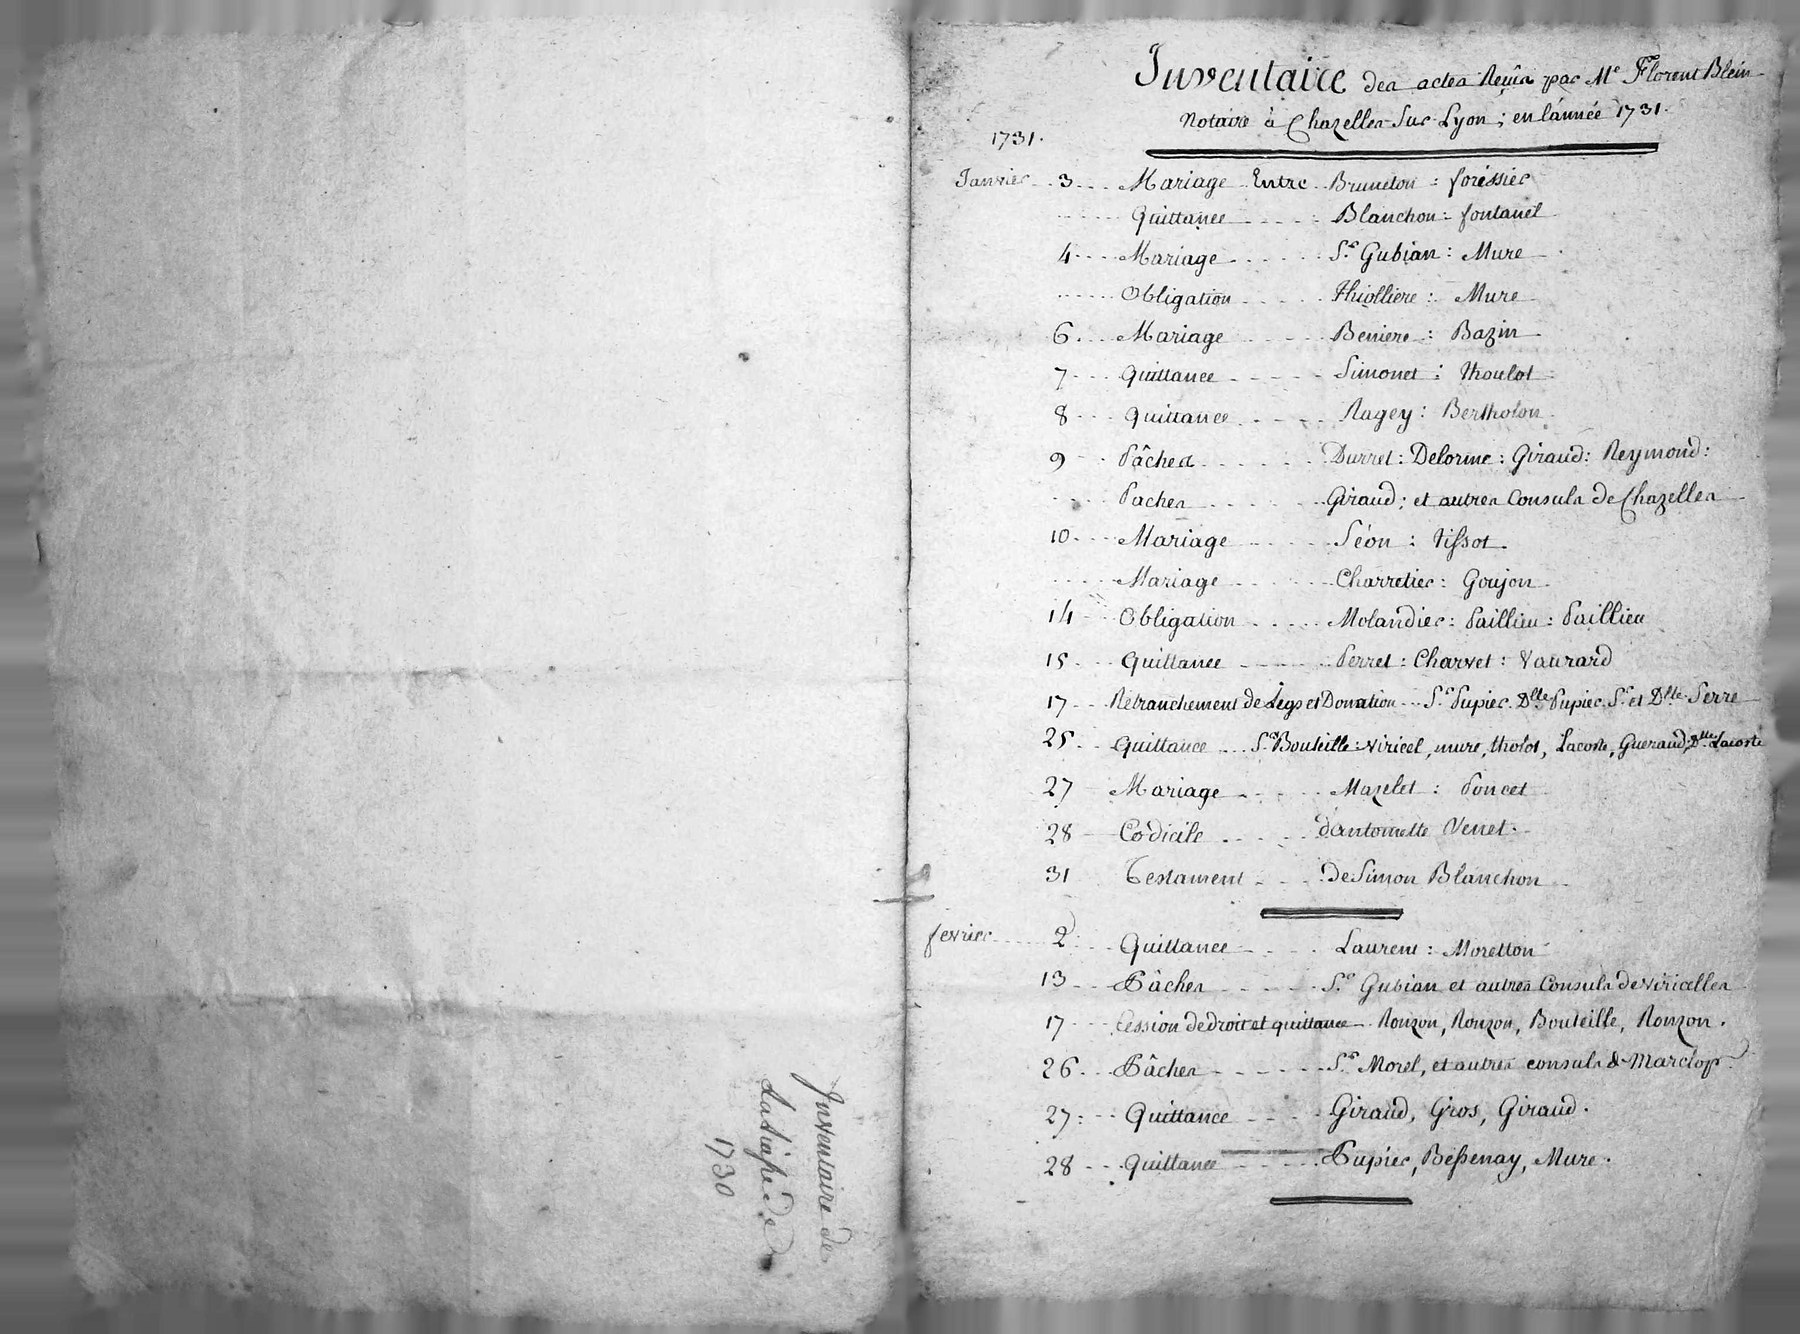 Inventaire de
la liasse de
1730
Inventaire des actes Reçûs par Me Florent Blein
Notaire à Chazelles Sur Lyon; en l'année 1731.
1731.
Janvier 3 Mariage Entre Bruneton : foressier
Quittance Blanchon : fontanel
4 Mariage Sr. Gubian : Mure
Obligation thiolliere : Mure
6. Mariage Beniere : Bazin
7 Quittance Simonet : thoulot
8 Quittance Ragey : Bertholon
9 Pâches Durret : Delorme : Giraud : Reymond :
Paches Giraud ; et autres Consuls de Chazelles
10 Mariage Séon : tissot.
Mariage Charretier : Goujon
14 Obligation Molandier : Paillieu : Paillieu
15 Quittance Perret : Charvet : Vaurard
17 Retranchement de Legs et Donation Sr. Pupier. Dlle Pupier. Sr. et Dlle. Serre
25. Quittance Sr. Bouteille : viricel, mure, tholot, Lacoste, Gueraud, Dlle. Lacoste
27 Mariage Mazelet : Poncet
28 Codicile d'antoinette Venet.
31 Testament de Simon Blanchon
fevrier 2 Quittance Laurent : Moretton
13 Pâches Sr. Gubian et autres Consuls de viricelles
17 Cession de droit et quittance Ronzon, Ronzon, Bouteille, Ronzon.
26. Pâches Sr. Morel, et autres consuls de Marclop.
27 : Quittance Giraud, Gros, Giraud.
28 Quittance Pupier, Bessenay, Mure.